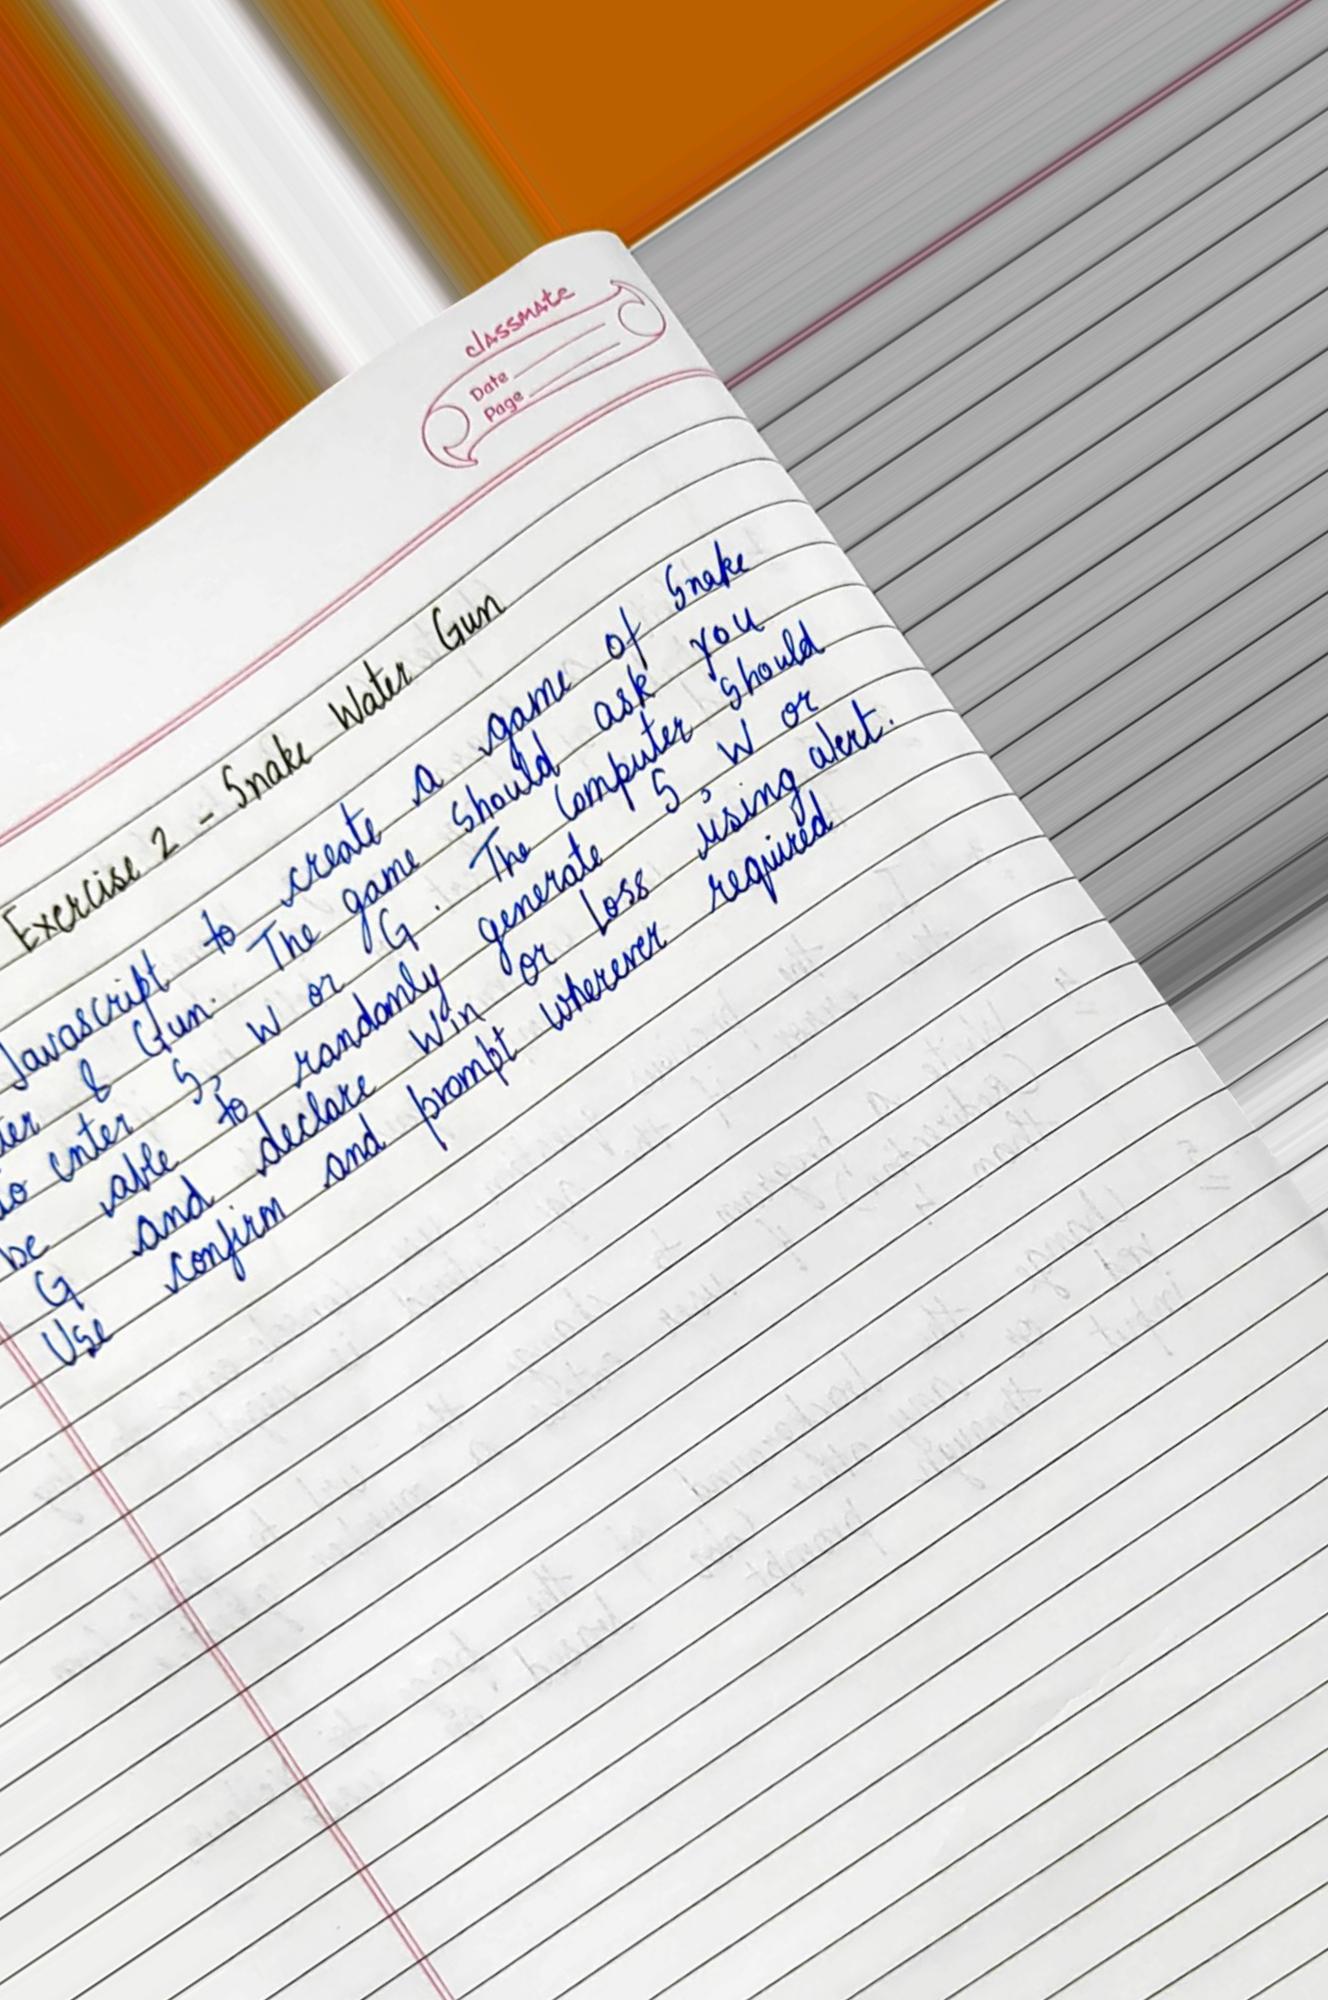 classmate
Date
Page
Exercise 2 - Snake Water Gun
Javascript to create a game of Snake
& Gun. The game should ask you
to enter S, W or G. The Computer should
be able to randomly generate S, W or
G and declare Win or Loss using alert.
Use confirm and prompt wherever required